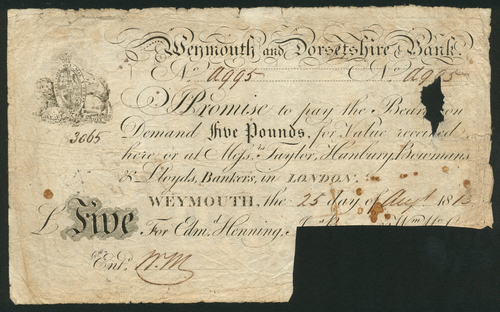 Weymouth and Dorsetshire Bank.
No. a995 No. a995
I Promise to pay the Bearer on
3065
Demand Five Pounds, for Value received
here or at Messrs. Taylor, Hanbury, Bowmans
& Lloyds, Bankers, in LONDON.
WEYMOUTH, the 25 day of Augt 181
£ Five For Edmd. Henning,
Entd. W.M